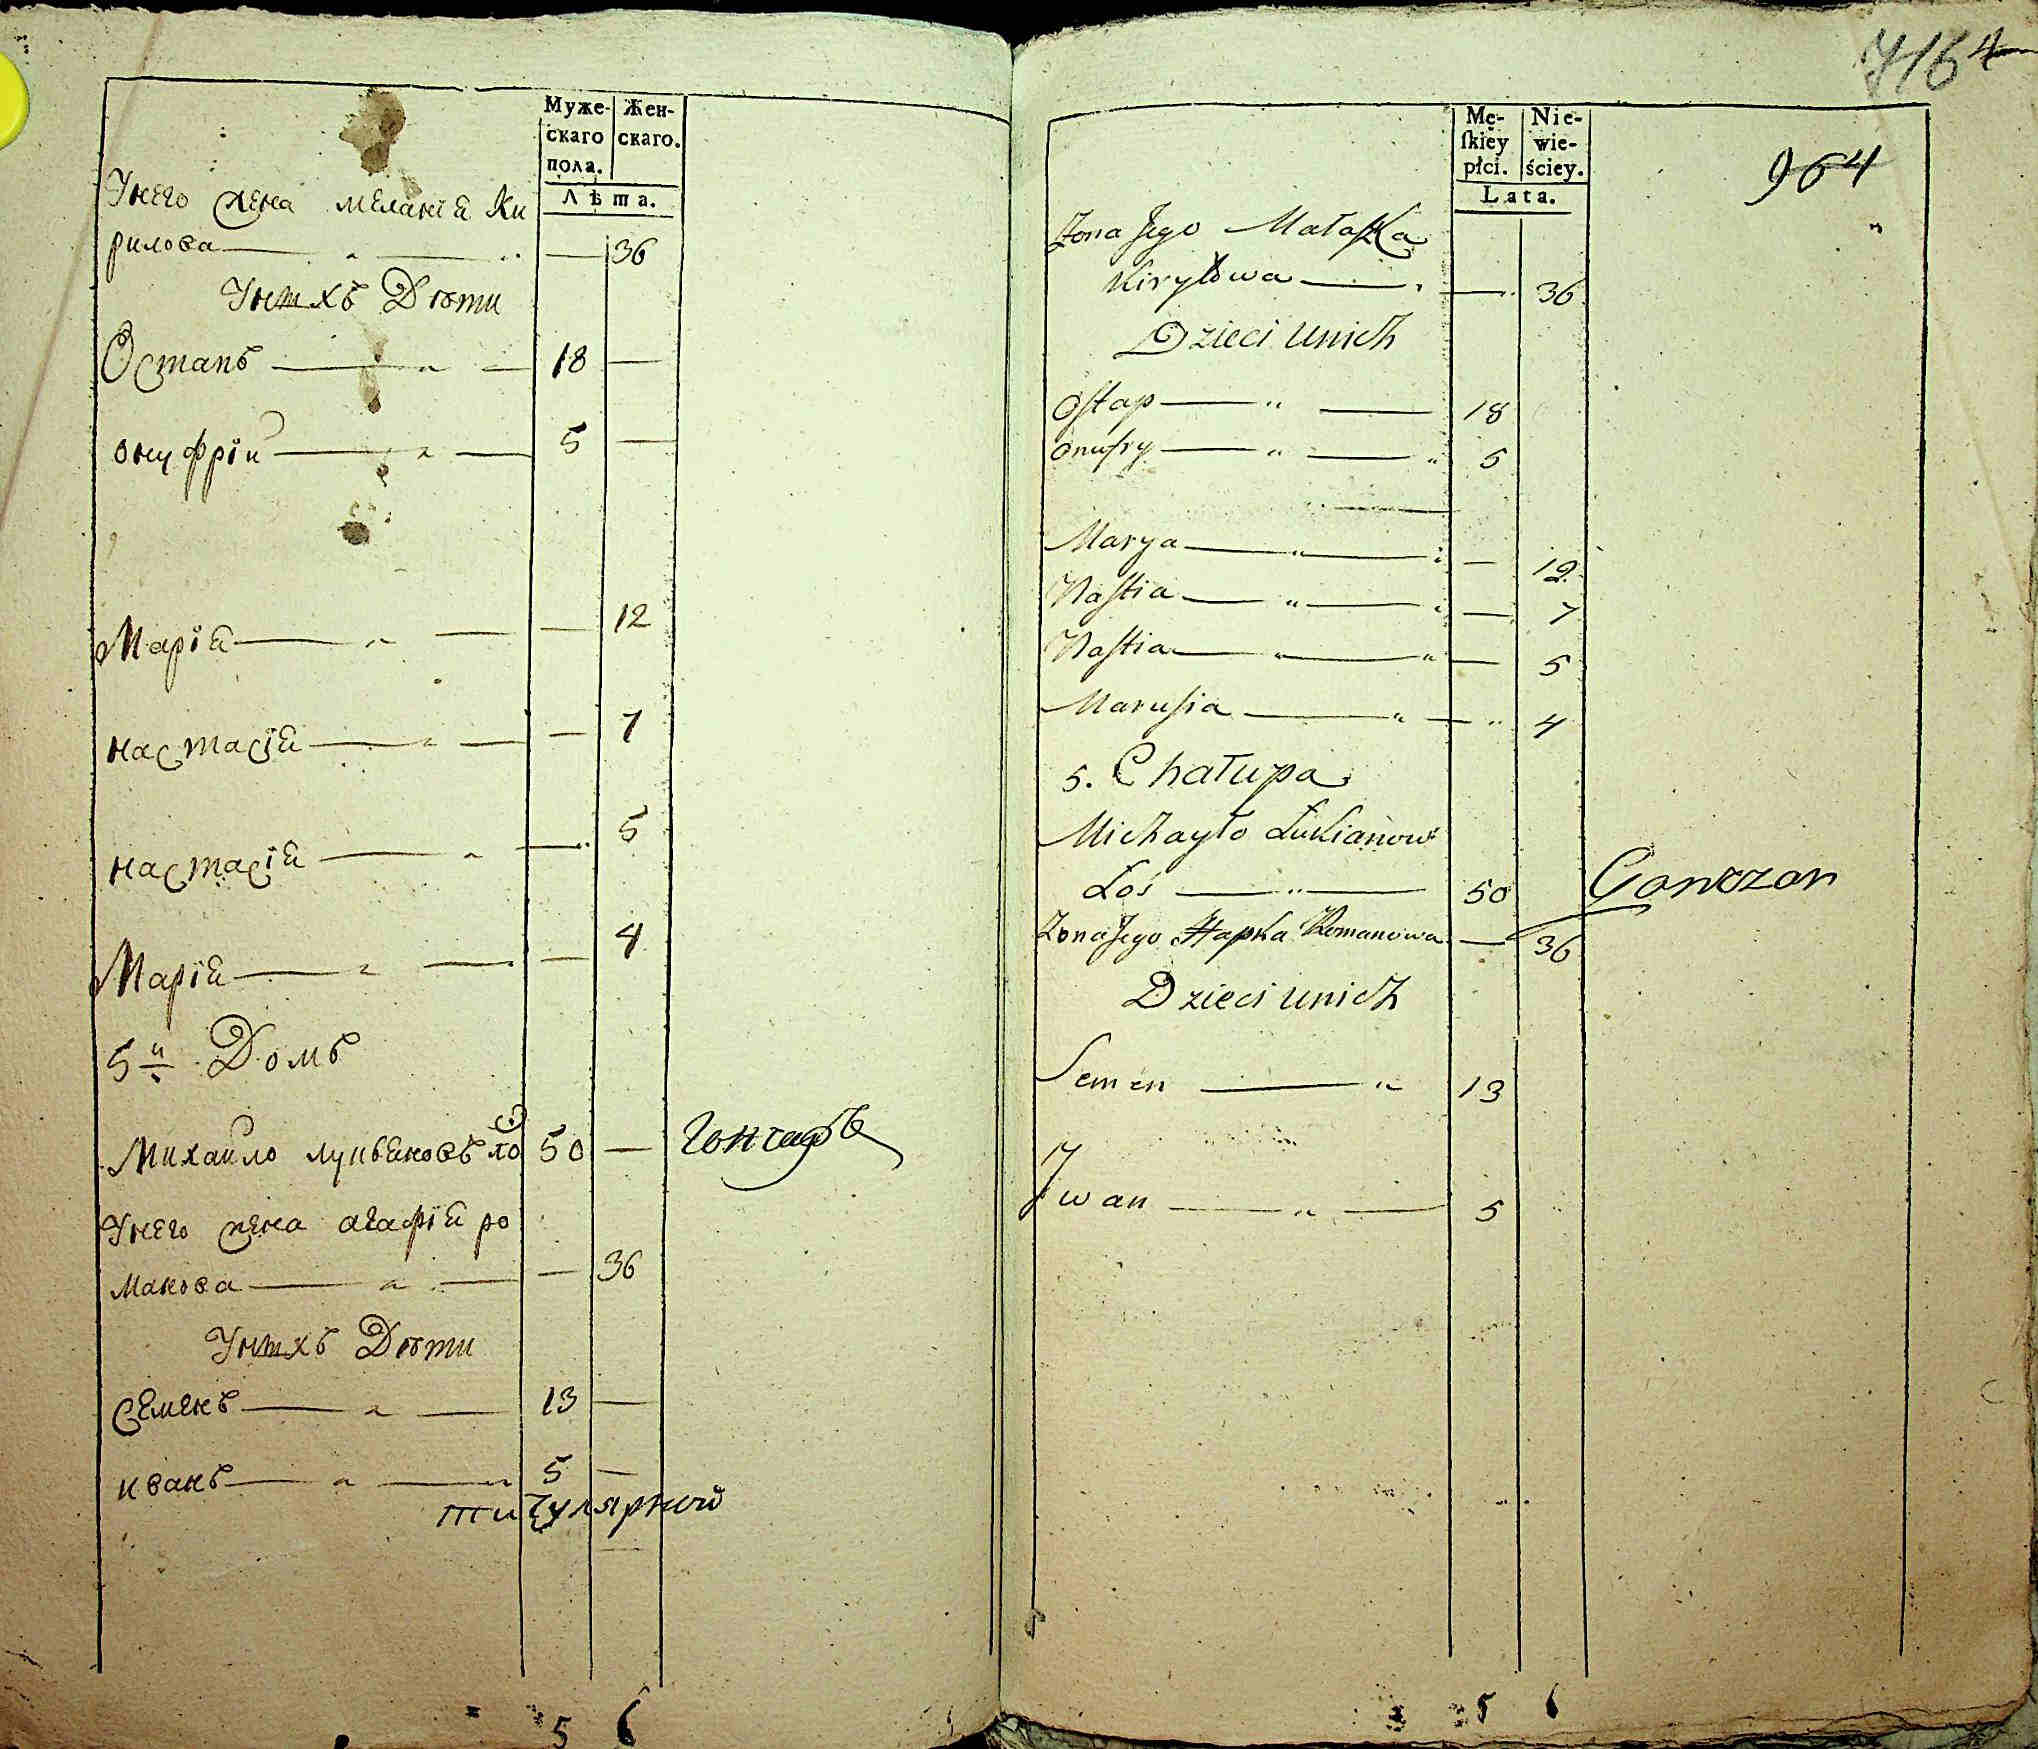 Муже-
скаго
пола.
Жен-
скаго.
Лѣта.
Унего жена меланіа Ки
рилова — „ — „ — 36
Унихъ Дѣти
Остапъ — „ — 18 —
онуфріи — „ — 5 —
Маріа — „ — — 12
настасіа — „ — — 7
настасіа — „ — — 5
Маріа — „ — — 4
5й Домъ
Михайло лукьановъ ло с 50 — Гончаръ
Унего жена агафіа ро
манова — „ — — 36
Унихъ Дѣти
семенъ — „ — 13 —
иванъ — „ — 5 —
титулярной
5 6
7164
964
Mę-
ſkiey
płci.
Nie-
wie-
ściey.
Lata.
Żona Jego Małaszka
Kiryłowa — „ — 36
Dzieci unich
Oſtap — „ — 18
Onufry — „ — „ 5
Marya — „ — „ — 12
Naſtia — „ — „ — 7
Naſtia — „ — „ — 5
Maruſia — „ — „ 4
5. Chałupa
Michayło Łukianow
Łoś — „ — 50 Gonczar
Żona Jego Hapka Romanowa — 36
Dzieci unich
Semen — „ 13
Jwan — „ — 5
5 6